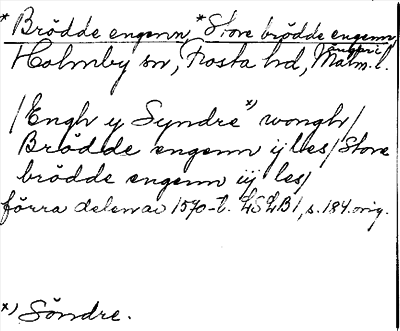 *Brödde engenn, *Store brödde engenn,
Holmby sn, Frosta hd, Malm. l.
ängar i
/Engh y Syndre *) wongh/
Brödde engenn ij les/Store
brödde engenn iij les/
förra delen av 1570-t. LSLB 1, s. 184. orig.
*) Söndre.